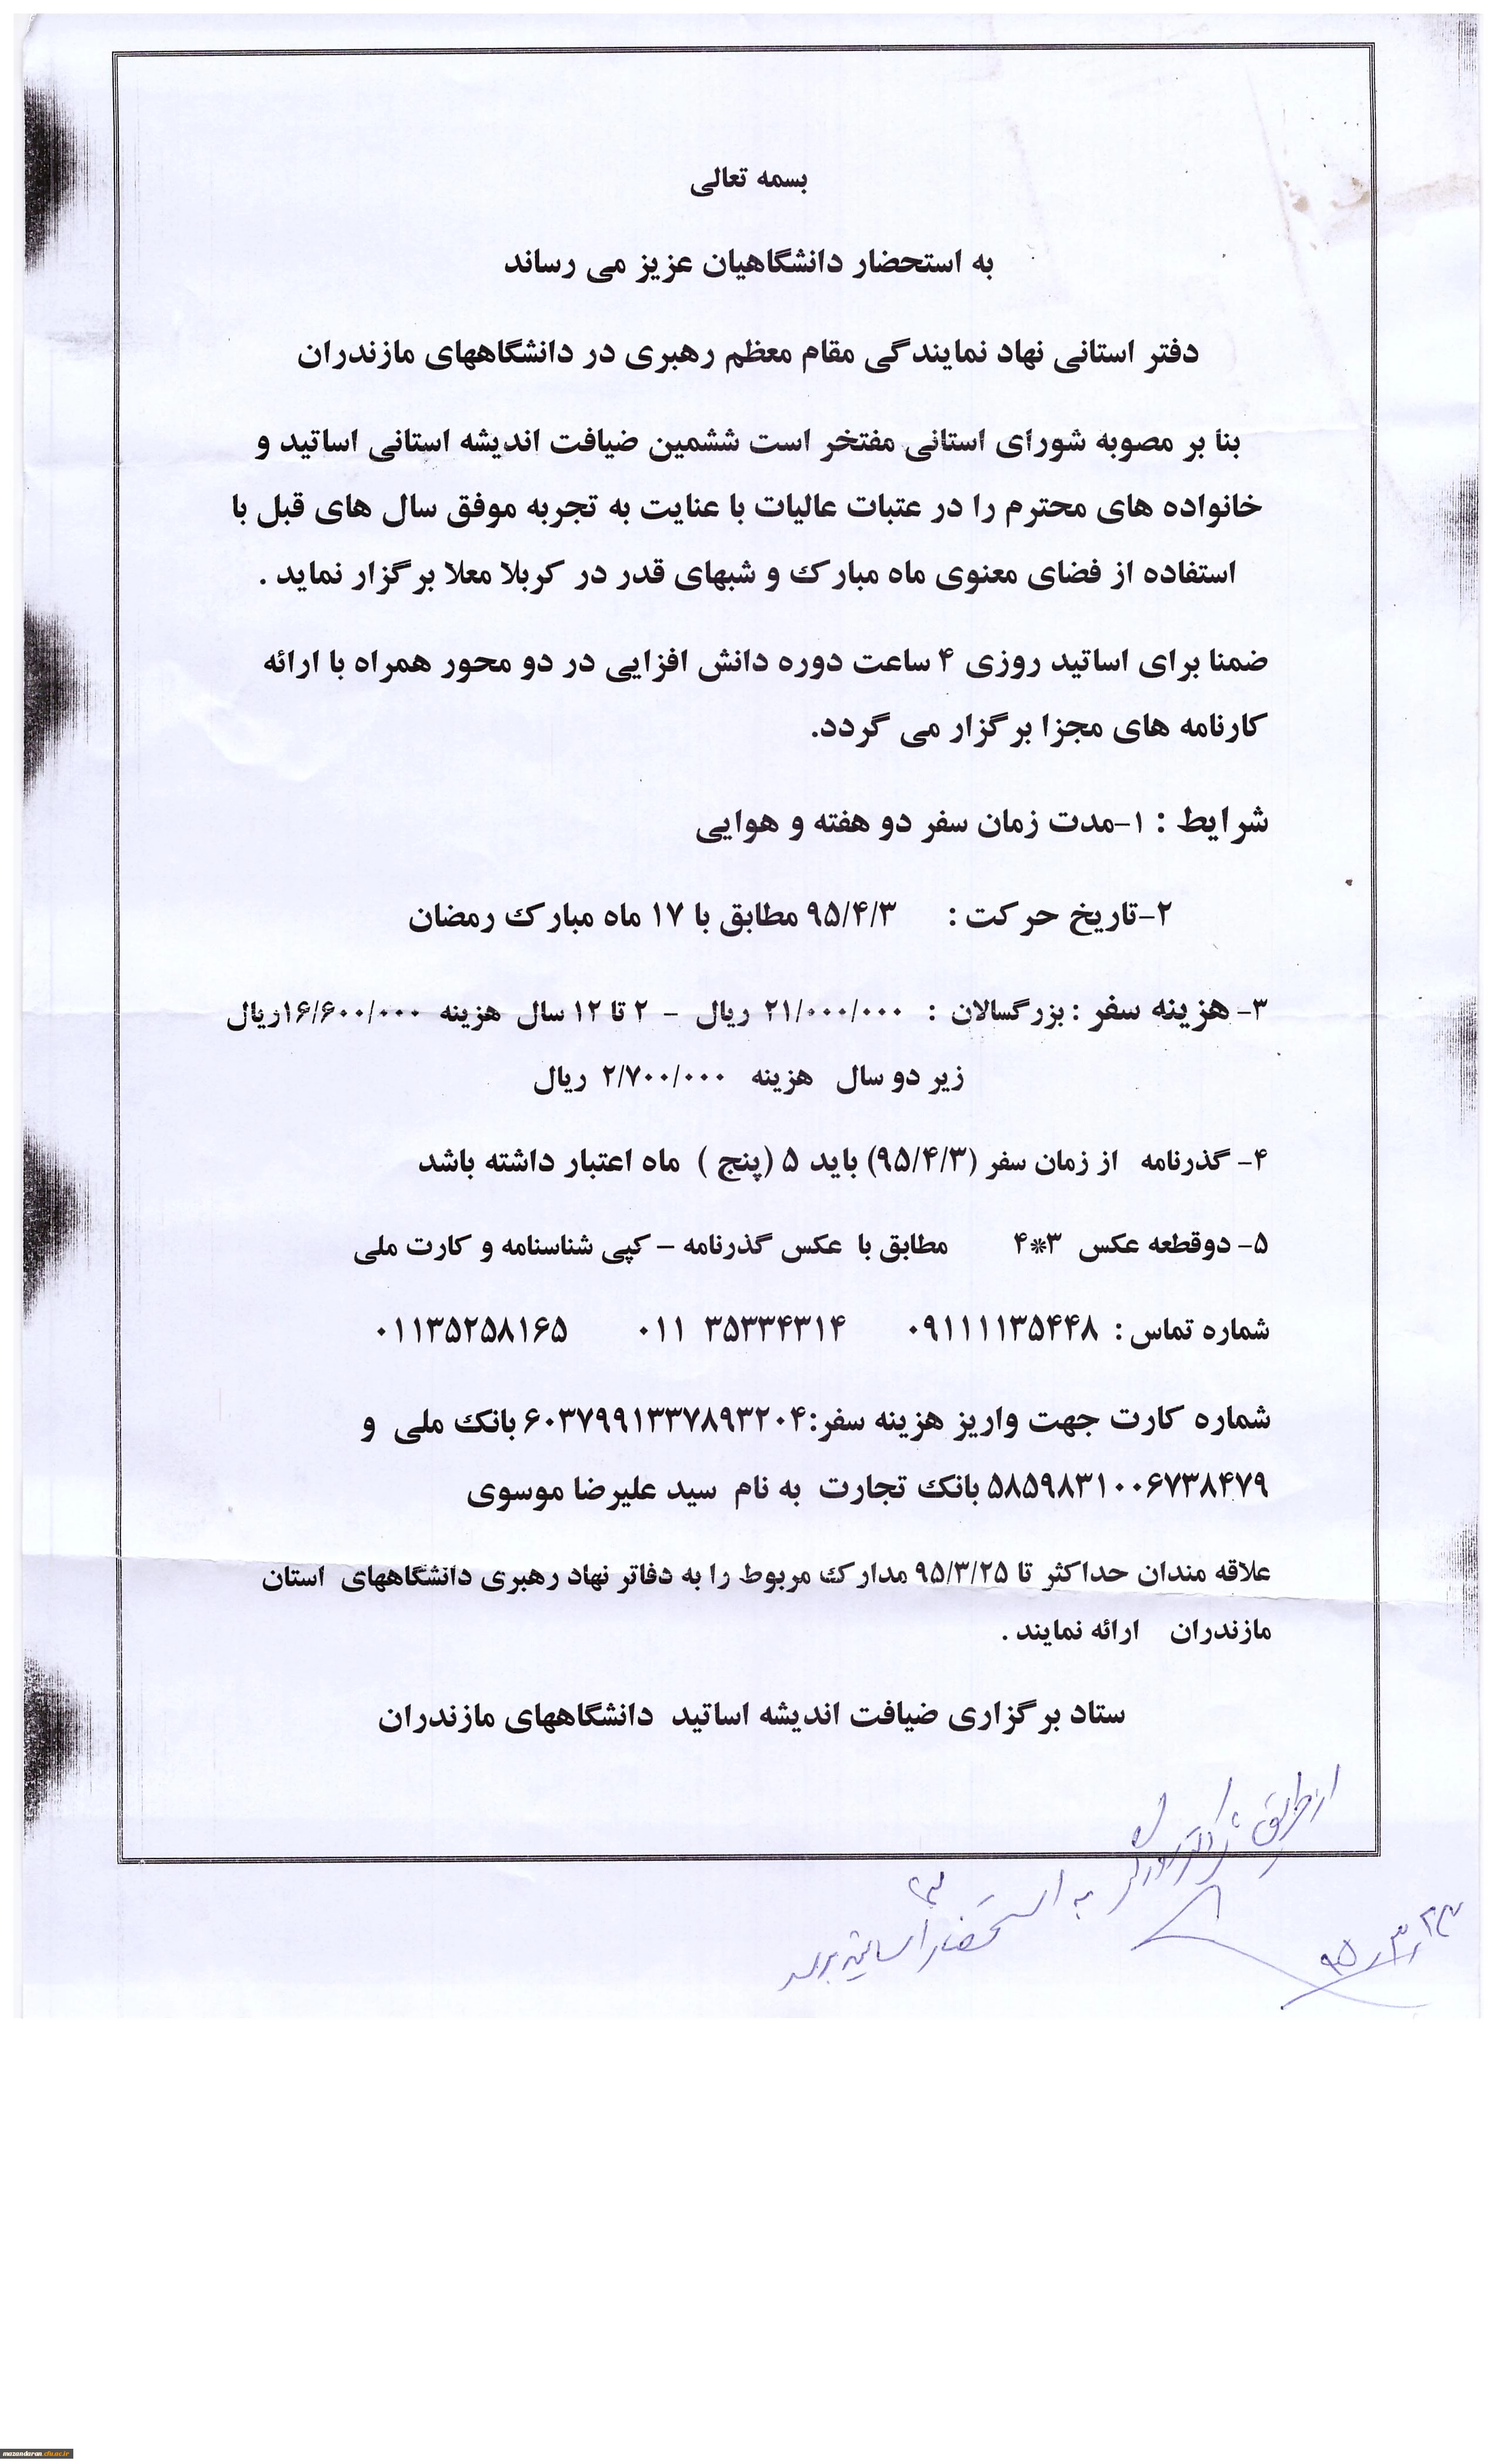 بسمه تعالی
به استحضار دانشگاهیان عزیز می رساند
دفتر استانی نهاد نمایندگی مقام معظم رهبری در دانشگاههای مازندران
بنا بر مصوبه شورای استانی مفتخر است ششمین ضیافت اندیشه استانی اساتید و
خانواده های محترم را در عتبات عالیات با عنایت به تجربه موفق سال های قبل با
استفاده از فضای معنوی ماه مبارک و شبهای قدر در کربلا معلا برگزار نماید .
ضمنا برای اساتید روزی ۴ ساعت دوره دانش افزایی در دو محور همراه با ارائه
کارنامه های مجزا برگزار می گردد.
شرایط : ۱-مدت زمان سفر دو هفته و هوایی
۲-تاریخ حرکت : ۹۵/۴/۳ مطابق با ۱۷ ماه مبارک رمضان
۳- هزینه سفر : بزرگسالان : ۲۱/۰۰۰/۰۰۰ ریال - ۲ تا ۱۲ سال هزینه ۱۶/۶۰۰/۰۰۰ریال
زیر دو سال هزینه ۲/۷۰۰/۰۰۰ ریال
۴- گذرنامه از زمان سفر (۹۵/۴/۳) باید ۵ (پنج ) ماه اعتبار داشته باشد
۵- دوقطعه عکس ۳*۴ مطابق با عکس گذرنامه – کپی شناسنامه و کارت ملی
شماره تماس : ۰۹۱۱۱۱۳۵۴۴۸ ۳۵۳۳۴۳۱۴ ۰۱۱ ۰۱۱۳۵۲۵۸۱۶۵
شماره کارت جهت واریز هزینه سفر:۶۰۳۷۹۹۱۳۳۷۸۹۳۲۰۴ بانک ملی و
۵۸۵۹۸۳۱۰۰۶۷۳۸۴۷۹ بانک تجارت به نام سید علیرضا موسوی
علاقه مندان حداکثر تا ۹۵/۳/۲۵ مدارک مربوط را به دفاتر نهاد رهبری دانشگاههای استان
مازندران ارائه نمایند .
ستاد برگزاری ضیافت اندیشه اساتید دانشگاههای مازندران
از طریق
به استحضار اساتید برسد
۹۵/۳/۲۳
mazandaran.cfu.ac.ir